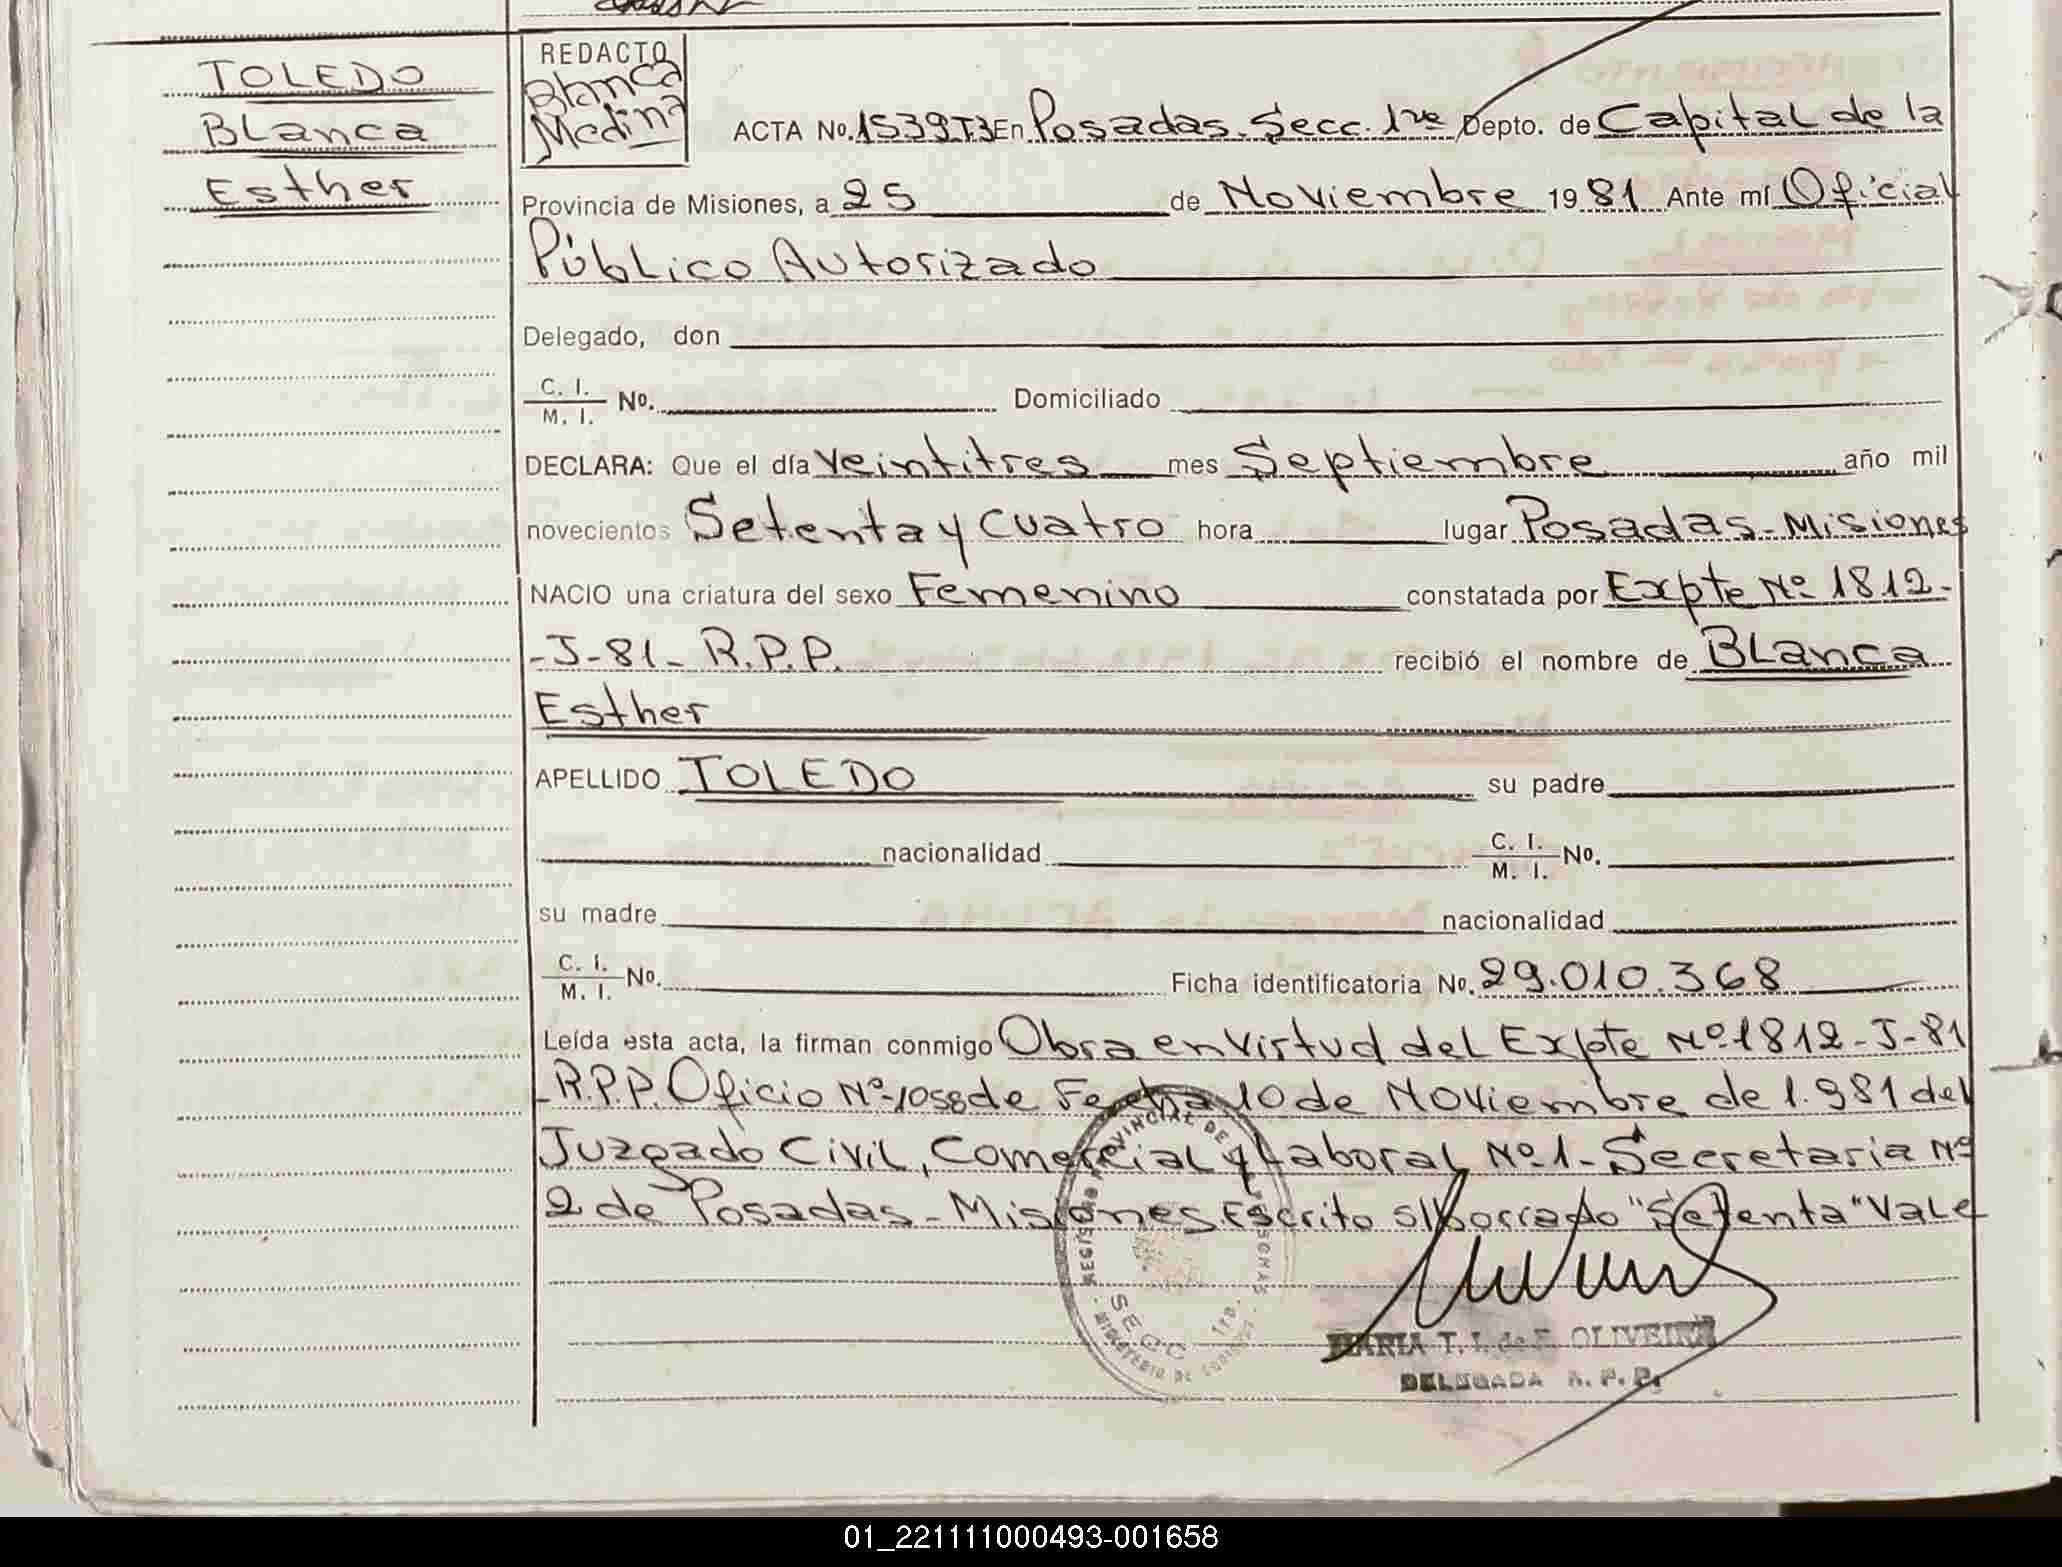 TOLEDO
Blanca
Esther
REDACTO
Blanca
Medina
ACTA No. 1539T3 En Posadas. Secc. 1ra Depto. de Capital de la
Provincia de Misiones, a 25 de Noviembre 1981 Ante mí Oficial
Público Autorizado
Delegado, don
C. I.
M. I. No. Domiciliado
DECLARA: Que el día veintitres mes Septiembre año mil
novecientos Setenta y cuatro hora lugar Posadas-Misiones
NACIO una criatura del sexo Femenino constatada por Expte Nº 1812-
-J-81- R.P.P. recibió el nombre de Blanca
Esther
APELLIDO TOLEDO su padre
nacionalidad C. I.
M. I. No.
su madre nacionalidad
C. I.
M. I. No. Ficha identificatoria No. 29.010.368
Leída esta acta, la firman conmigo Obra en virtud del Expte Nº 1812-J-81
-R.P.P. Oficio Nº 1058 de Fecha 10 de Noviembre de 1.981 del
Juzgado Civil, Comercial y Laboral Nº 1- Secretaria Nº
2 de Posadas-Misiones. Escrito s/borrado "Setenta" Vale
REGISTRO PROVINCIAL DE LAS PERSONAS
SECC. 1ra.
MINISTERIO DE GOBIERNO
MARIA T. I. de F. OLIVEIRA
DELEGADA R. P. P.
01_221111000493-001658